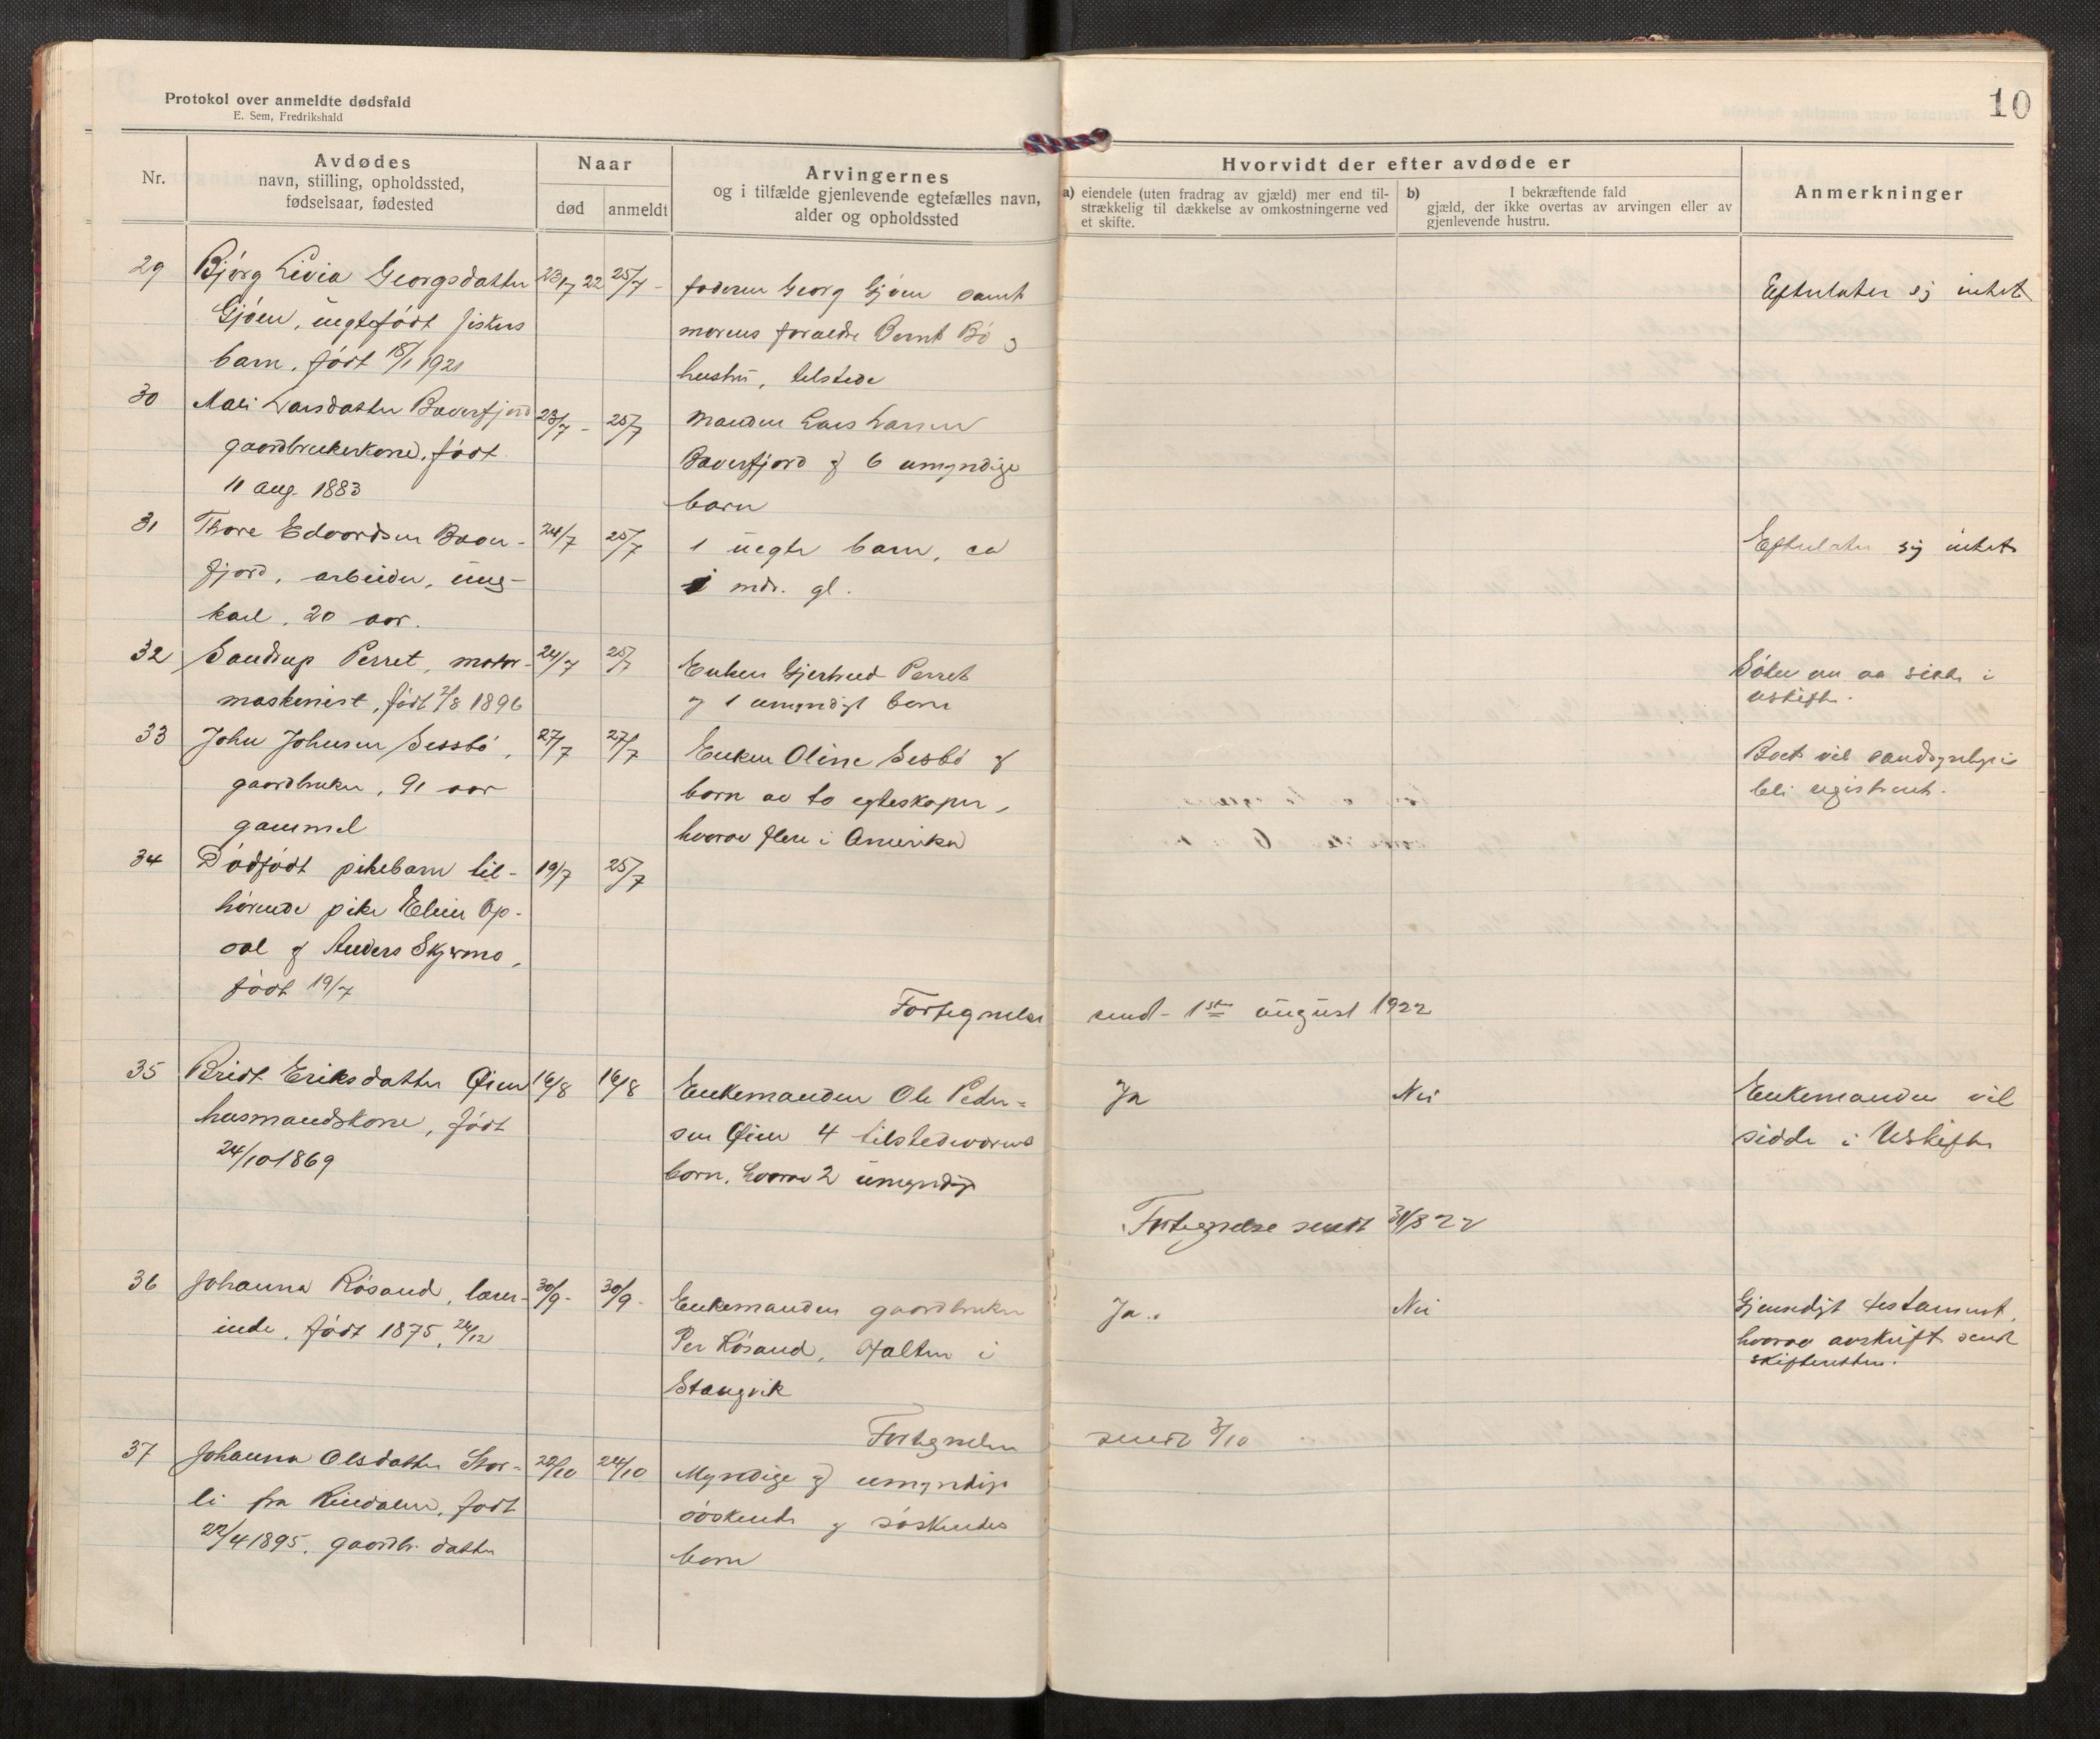 Protokol over anmeldte dødsfald
E. Sem, Fredrikshald
10
Nr.
Avdødes
navn, stilling, opholdssted,
fødselsaar, fødested
Naar
død
anmeldt
Arvingernes
og i tilfælde gjenlevende egtefælles navn,
alder og opholdssted
Hvorvidt der efter avdøde er
a) eiendele (uten fradrag av gjæld) mer end til-
strækkelig til dækkelse av omkostningerne ved
et skifte.
b) I bekræftende fald
gjæld, der ikke overtas av arvingen eller av
gjenlevende hustru.
Anmerkninger
29 Bjørg Livia Georgsdatter 23/7 22 25/7 - faderen Georg Gjøen samt Efterlater sig intet
Gjøen, uegtefødt fiskers morens forældre Bernt Bø og
barn, født 18/1 1921 hustru, tilstede
30 Mali Larsdatter Bæverfjord 23/7 - 25/7 Manden Lars Larsen
gaardbrukerkone, født Bæverfjord og 6 umyndige
11 aug. 1883 barn
31 Thore Edvardsen Bæver- 24/7 25/7 1 uegte barn, ca Efterlater sig intet
fjord, arbeider, ung- mdr. gl.
karl, 20 aar.
32 Sandrup Perret, motor- 24/7 25/7 Enken Gjertrud Perret Søker om aa sidde i
maskinist, født 2/8 1896 og 1 umyndigt barn uskifte.
33 John Johnsen Sessbø, 27/7 27/7 Enken Oline Sesbø og Boet vil sandsynligvis
gaardbruker, 91 aar børn av to egteskaper, bli registrert.
gammel hvorav flere i Amerika
34 Dødfødt pikebarn til- 19/7 25/7
hørende pike Elen Op-
dal og Anders Skjermo,
født 19/7
Fortegnelse sendt 1ste august 1922
35 Bridt Eriksdatter Øien 16/8 16/8 Enkemanden Ole Peder- Ja Nei Enkemanden vil
husmandskone, født sen Øien 4 tilstedeværende sidde i Uskifte
24/10 1869 børn, hvorav 2 umyndige
Fortegnelse sendt 31/8 22
36 Johanna Røsand, lærer- 30/9 - 30/9 - Enkemanden gaardbruker Ja. Nei Gjensidigt testament,
inde, født 1875, 24/12 Per Røsand, i hvorav avskrift sendt
Stangvik skifteretten.
Fortegnelse sendt 3/10
37 Johanna Olsdatter Stor- 22/10 24/10 Myndige og umyndige
li fra Rindalen, født søskende og søskendes
22/4 1895, gaardbr. datter børn